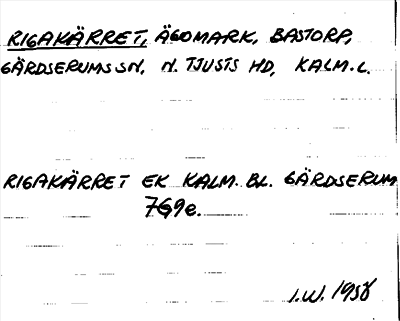 RIGAKÄRRET, ÄGOMARK, BASTORP,
GÄRDSERUMS SN, N. TJUSTS HD, KALM. L.
RIGAKÄRRET EK KALM. BL. GÄRDSERUM
7G9e.
I.W. 1958